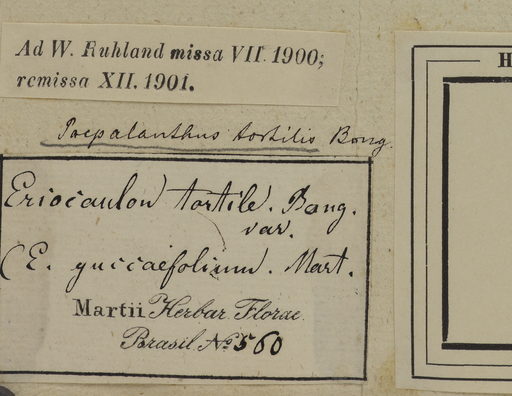 Ad W. Ruhland missa VII. 1900;
remissa XII. 1901.
Paepalanthus tortilis Bong.
Eriocaulon tortile. Bong.
var.
(E. yuccaefolium. Mart.
Martii Herbar. Florae
Brasil. No. 560
H